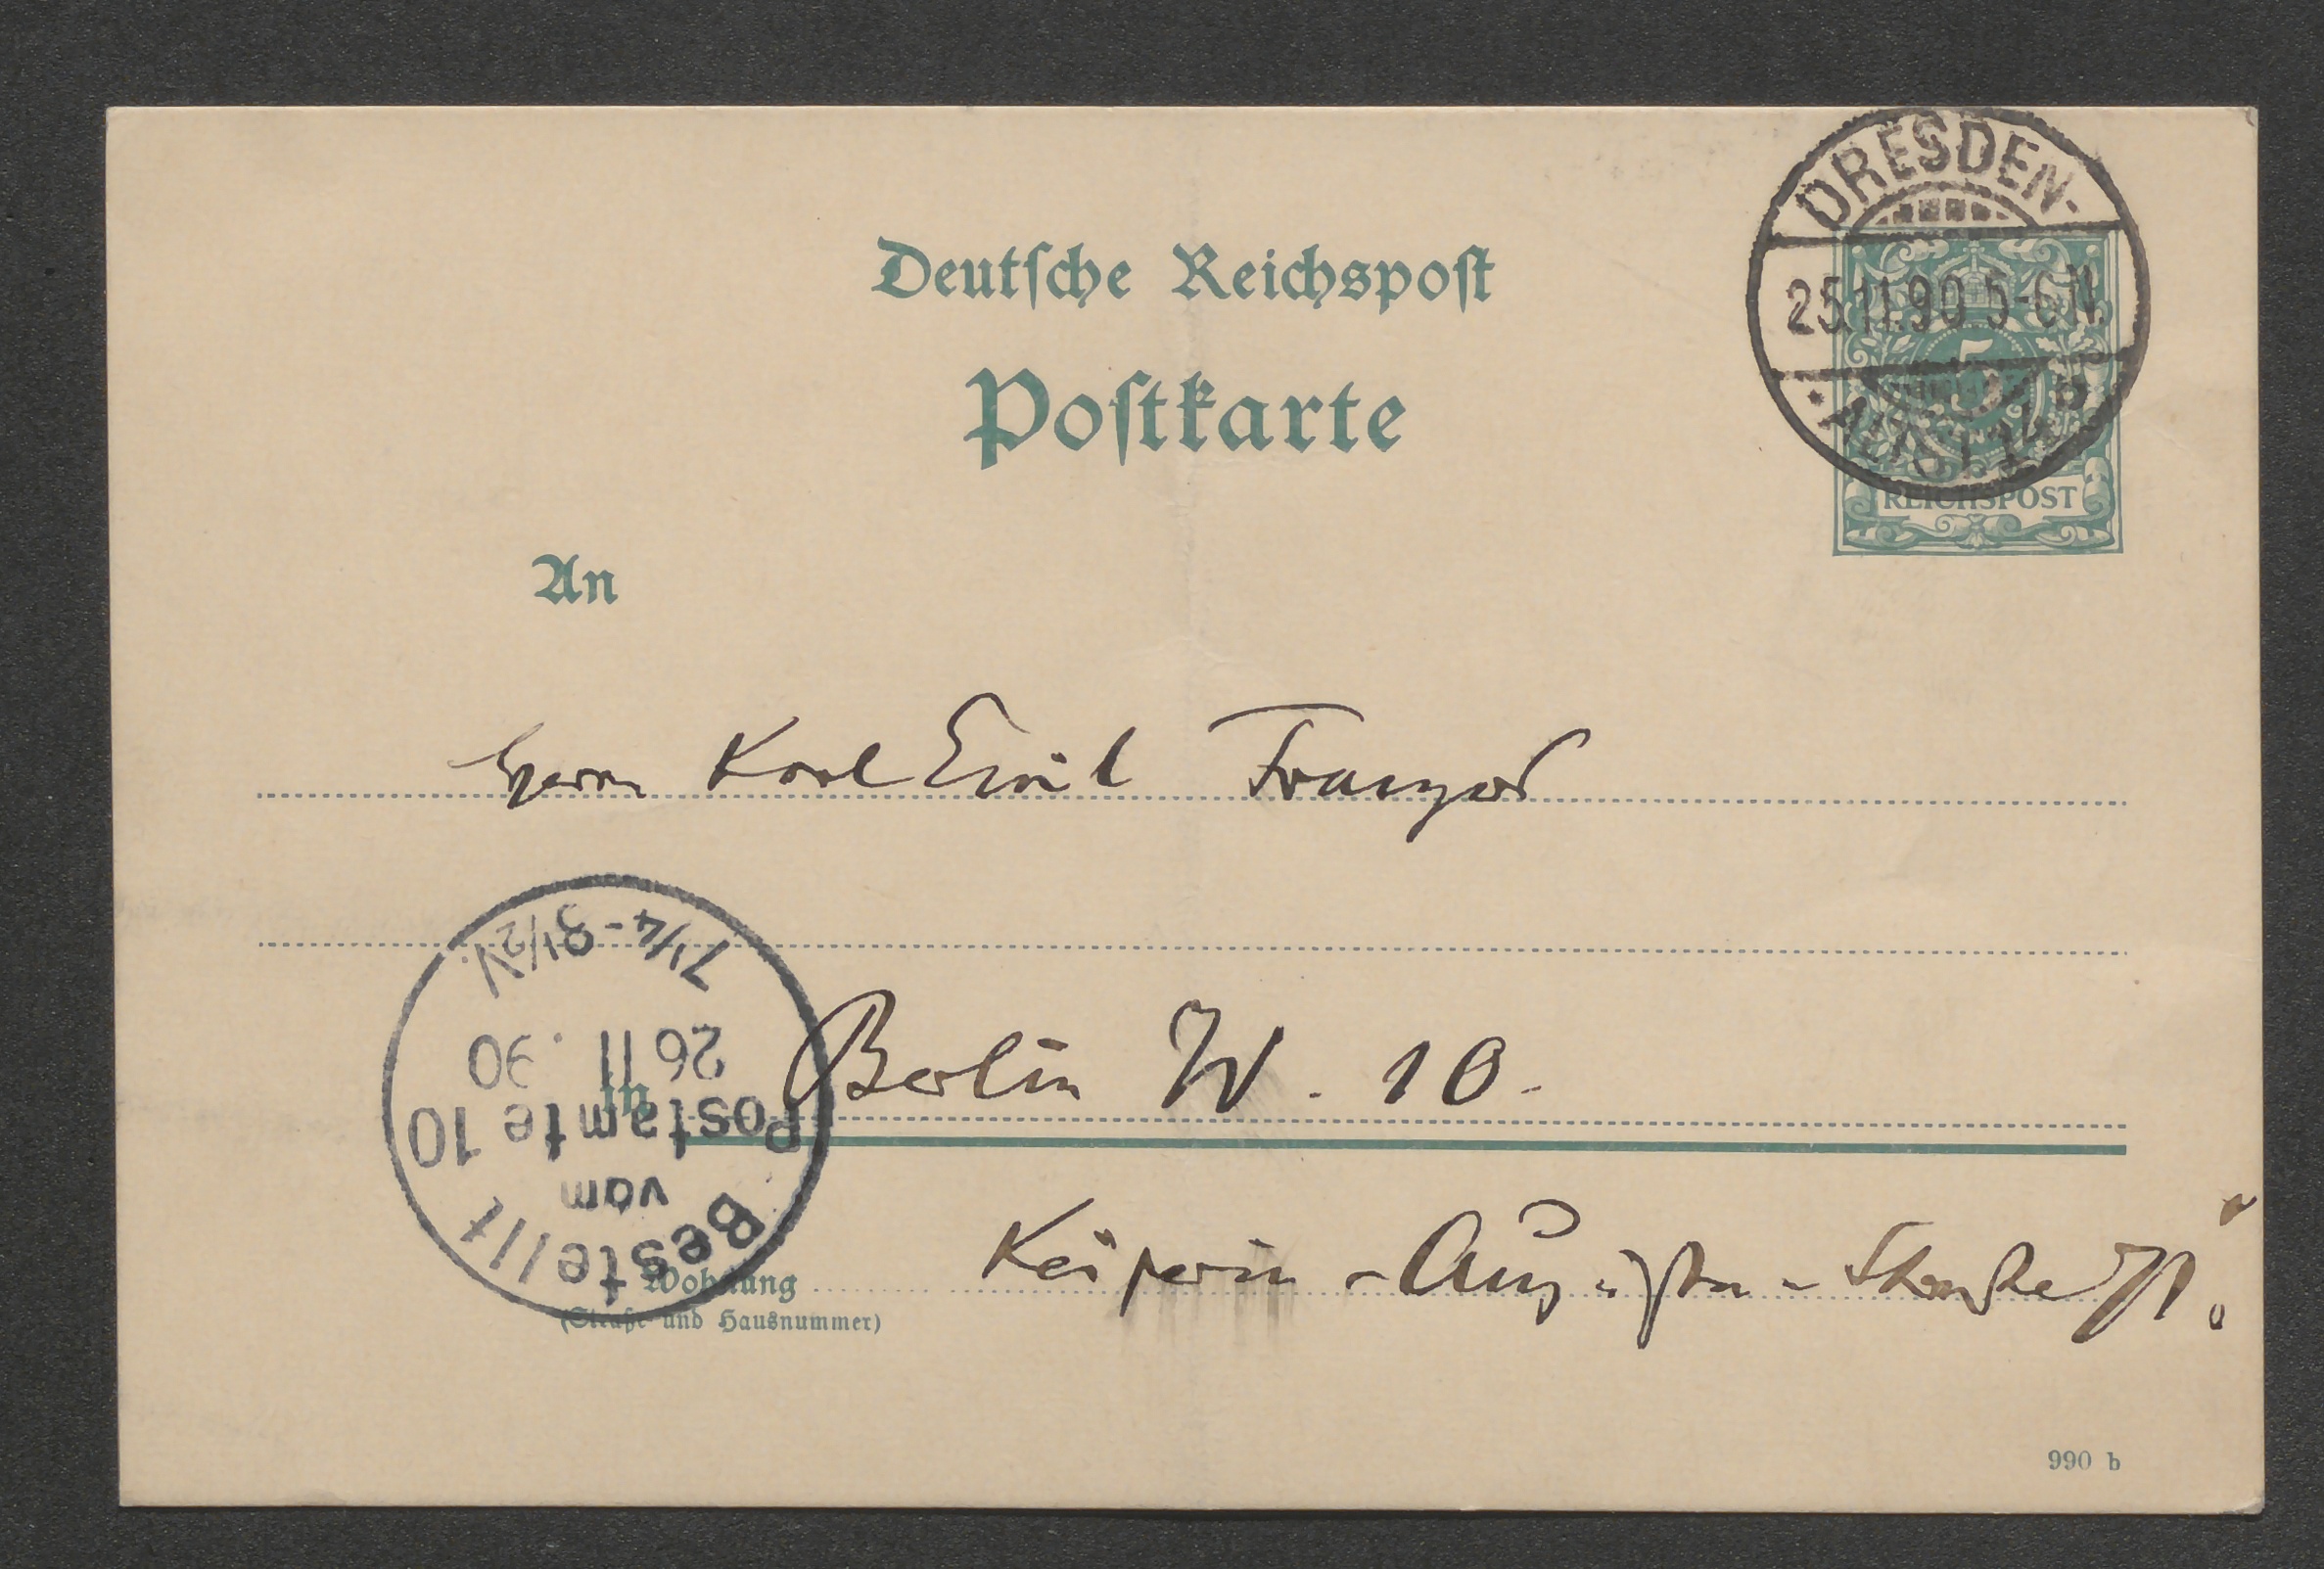 DRESDEN.
25.11.90 5-6 N.
ALTST.
5
REICHSPOST
Deutsche Reichspost
Postkarte
An
Herrn Karl Emil Franzos
Berlin W. 10.
in
Kaiserin-Augusta-Straße
Wohnung
(Straße und Hausnummer)
Bestellt
vom
Postamte 10
26 11. 90
7¼-8½V.
990 b